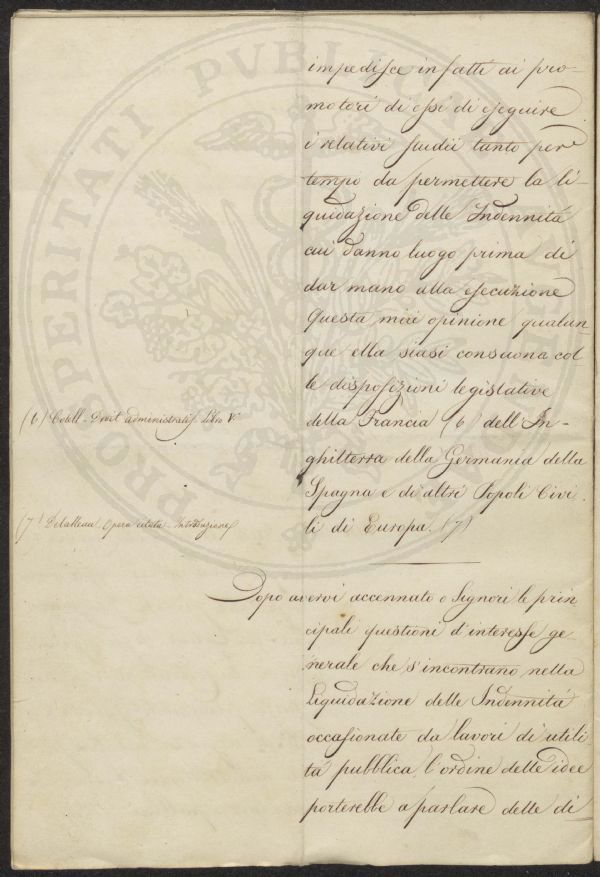 PROSPERITATI PUBLICAE
impedisce infatti ai pro-
motori di essi di eseguire
i relativi studii tanto per
tempo da permettere la li-
quidazione delle Indennità
cui danno luogo prima di
dar mano alla esecuzione
Questa mia opinione qualun
que ella siasi consuona col-
le disposizioni legislative
(6) Cotell - Droit administratif Libro V.
della Francia (6) dell'In-
ghilterra della Germania della
Spagna e di altri Popoli Civi
(7) Delalleau Opera citata - Introduzione
li di Europa. (7)
Dopo avervi accennato o Signori le prin
cipali questioni d'interesse ge-
nerale che s'incontrano nella
Liquidazione delle Indennità
occasionate da lavori di utili
tà pubblica, l'ordine delle idee
porterebbe a parlare delle di